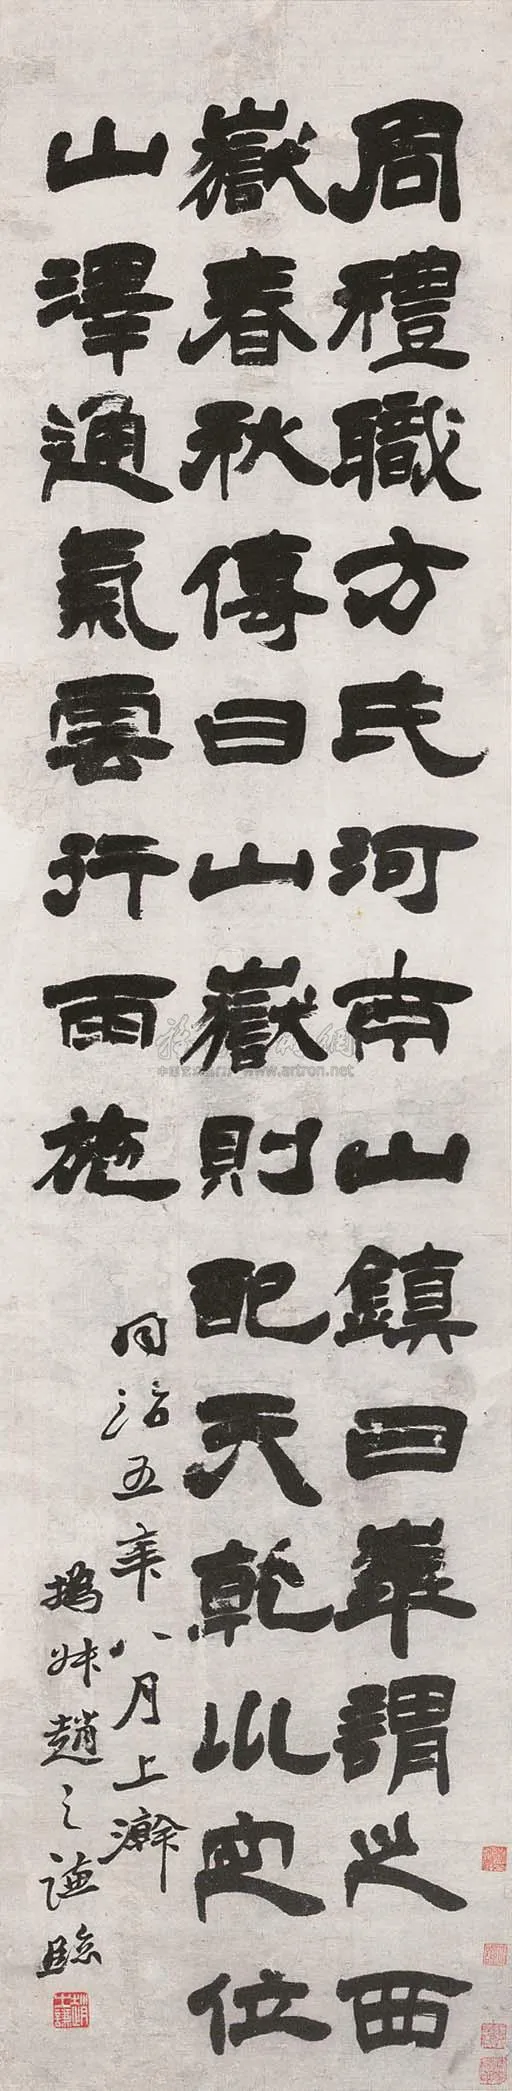 周禮職方氏河南山鎮曰華謂之西
嶽春秋傳曰山嶽則配天乾以定位
山澤通氣雲行雨施
同治五年八月上澣
撝叔趙之謙臨
www.artron.net